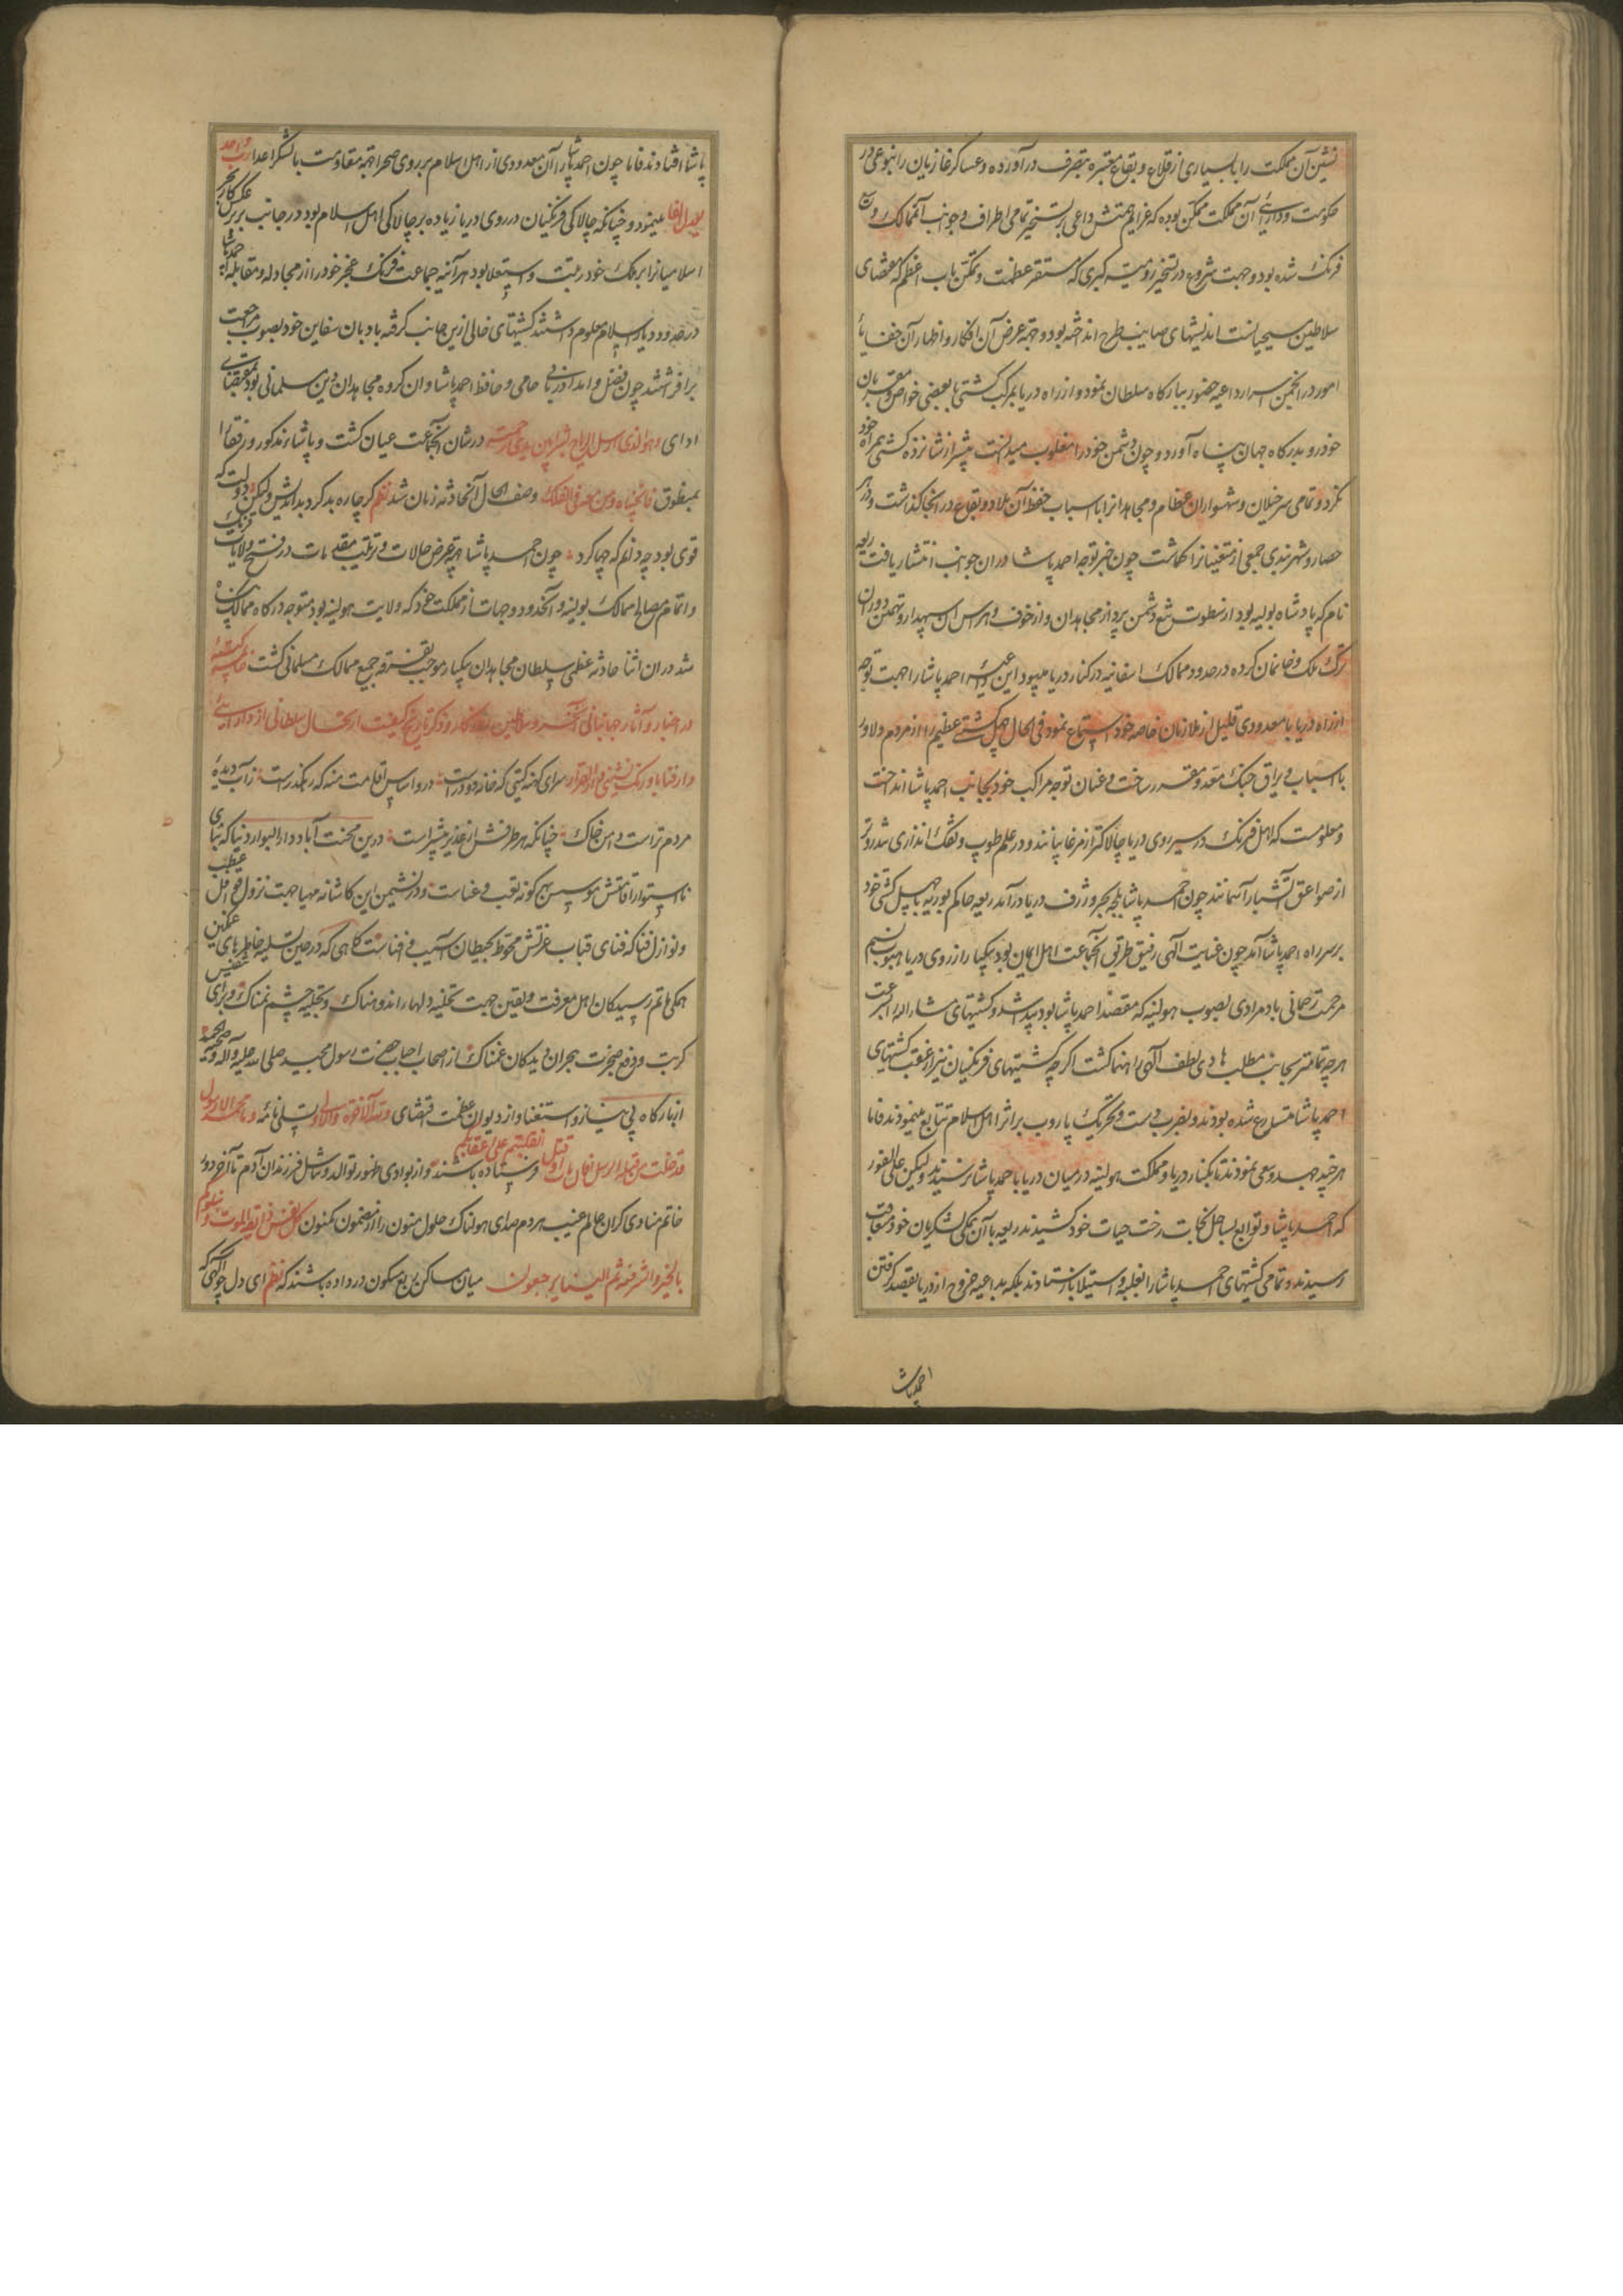 نشین آن مملکت را با بسیاری از قلاع و بقاع معتبره بتصرف درآورده و عساکر غازیان را بنوعی در
حکومت و دارائی آن مملکت ممکن بوده که عزایم همتش داعی بر تسخیر تمامی اطراف و جوانب آن ممالک
فرنک شده بود و جهت شروع در تسخیر رومیه کبری که مستقر عظمت و تمکن باب اعظم که مقتضای
سلاطین مسیحیانست اندیشهای صایب طرح انداخته بود و جهة عرض آن افکار و اظهار آن خفایای
امور در انجمن اسرار داعیه حضور ببارکاه سلطان نمود و از راه دریا بمرکب کشتی با بعضی خواص و مقربان
خود رو بدرکاه جهان پناه آورد و چون دشمن خود را مغلوب میدانست بیشتر از شانزده کشتی همراه خود
نکرد و تمامی سرخیلان و شهسواران عظام و مجاهدانرا با اسباب حفظ آن بلاد و بقاع در آنجا کذاشت و در هر
حصار و شهربندی جمعی از متعینانرا کماشت چون خبر توجه احمد پاشا در ان جوانب انتشار یافت ریعه
نام که پادشاه بولیه بود از سطوت تیغ دشمن پرداز مجاهدان و از خوف و هراس آن سپهدار و تهمتن دوران
ترک ملک و خانمان کرده در حدود ممالک اسفانیه در کنار دریا میبود این داعیه احمد پاشا را جهت توجه
از راه دریا با معدودی قلیل از ملازمان خاصه خود استماع نمود فی الحال چهل کشتی عظیم را از مردم دلاور
با اسباب و یراق جنک معد و مقرر ساخت و عنان توجه مراکب خود بجانب احمد پاشا انداخت
و معلومست که اهل فرنک در سیر روی دریا چالاکتر از مرغابیانند و در علم طوپ و تفک اندازی تندروتر
از صواعق آتشبار آسمانند چون احمد پاشا بلجه بحر ژرف دریا درآمد ریعه حاکم بولیه با چهل کشتی خود
بر سر راه احمد پاشا آمد چون عنایت الهی رفیق طریق آن جماعت اهل ایمان بود بیکبار از روی دریا هبوب نسیم
مرحمت رحمانی باد مرادی بصوب هولنیه که مقصد احمد پاشا بود پیدا شد و کشتیهای مشار الیه بسرعت
هر چه تمامتر بجانب مطلب هادی لطف الهی راهنما کشت اکرچه کشتیهای فرنکیان نیز از عقب کشتیهای
احمد پاشا متسارع شده بودند و بضرب دست و تحریک پاروب بر اثر اهل اسلام تتابع مینمودند فاما
هر چند جهد و سعی نمودند تا بکنار دریا و مملکت هولنیه در میان دریا با احمد پاشا نرسیدند و لیکن علی الفور
که احمد پاشا و توابع بساحل نجات رخت حیات خود کشیدند ریعه با آن همکی لشکریان خود متعاقب
رسیدند و تمامی کشتیهای احمد پاشا را بغلبه و استیلا بازستادند بلکه بداعیه خروج از دریا بقصد کرفتن
احمد پاشا
پاشا افتادند فاما چون احمد پاشا را آن معدودی از اهل اسلام بر روی صحرا جهة مقاومت با لشکر اعدا
مینمود و چنانکه چالاکی فرنکیان در روی دریا زیاده بر چالاکی اهل اسلام بود در جانب بر برعکس کار بحر
اسلامیانرا بر فرنک خود رتبت و استعلا بود هر آینه جماعت فرنک عجز خود را از مجادله و مقابله احمد پاشا
در حدود دیار اسلام معلوم داشتند کشتیهای خالی ازین جانب کرفته بادبان سفاین خود بصوب مراجعت
برافراشتند چون فضل و امداد ربانی حامی و حافظ احمد پاشا و ان کروه مجاهدان دین مسلمانی بود بمقتضای
ادای وهو الذی ارسل الریاح بشرا بین یدی رحمته در شان آن جماعت عیان کشت و پاشاء مذکور و رفقا را
بمنطوق فانجیناه ومن معه فی الفلک وصف الحال آن حادثه زمان شد نظم کر چاره بد کرد بداندیش ولیکن دولت که
قوی بود چه دانم که چها کرد چون احمد پاشا جهة عرض حالات و ترتیب مقدمات در فتح ولایات فرنک
و اتمام مصالح ممالک بولیه و آن حدود و جهات از مملکت خود که ولایت هولنیه بود متوجه درکاه ممالک پناه
شد در ان اثنا حادثه عظمی سلطان مجاهدان بیکبار موجب تفرقه جمیع ممالک مسلمانی کشت
در اخبار و آثار جهانبانی و ذکر تاریخ کیفیت ارتحال سلطانی از دار
سرای کهنه کیتی که خانه دو درست در و اساس اقامت منه که رهکذرست ز آب دیده
مردم ترست دامن خاک چنانکه هر طرفش از غدیر بیشترست درین محنت آباد دار البوار دنیا که بنای
نااستوار اقامتش مؤسس بهر کونه تعب و عناست و در نشیمن این کاشانه مهیا جهت نزول
و نوازل فنا که فنای قباب عزتش محوط بحیطان آسیب و فناست کاهی که در حین تسلیه خاطرهای غمکین
همکی ماتم رسیدکان اهل معرفت و یقین جهت تخلیه دلها از اندوهناک و تجلیه چشم نمناک و برای تنفیس
کربت و دفع ضجرت هجران دیدکان غمناک از اصحاب احباب حضرت رسول مجید صلی الله علیه و آله و صحبه
از بارکاه بی نیاز و استغنا و از دیوان عظمت اقتضای ولله الآخرة والاولی تسلی نامه وما محمد الا رسول
قد خلت من قبله الرسل افان مات او قتل انقلبتم علی اعقابکم فرستاده باشند و از بوادی ظهور توالد و تناسل فرزندان آدم تا آخر دور
خاتم منادی کران عالم غیب هر دم صدای هولناک حلول منون را از مضمون مکنون کل نفس ذائقة الموت ونبلوکم
بالخیر والشر فتنة ثم الینا یرجعون میان ساکن ربع مسکون در داده باشند که نظم ای دل چو آکهی که